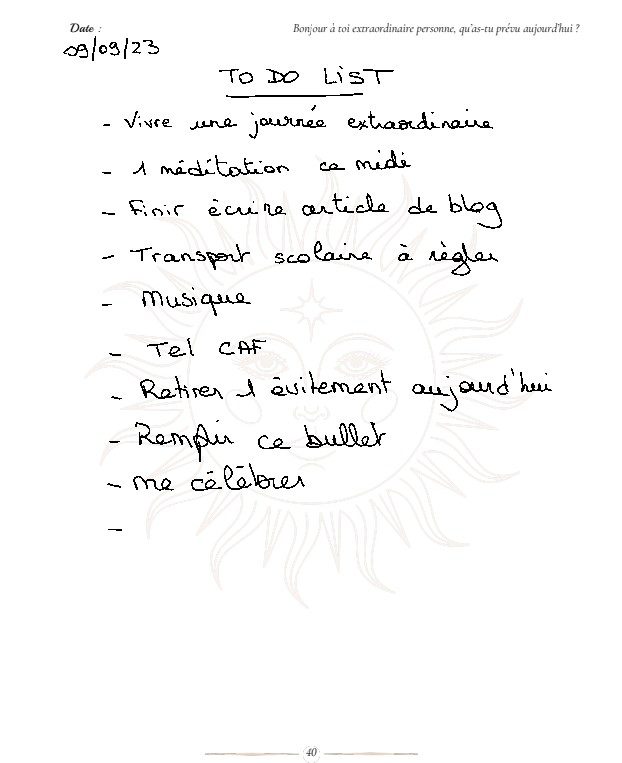 Date : Bonjour à toi extraordinaire personne, qu'as-tu prévu aujourd'hui ?
09/09/23
TO DO LIST
- Vivre une journée extraordinaire
- 1 méditation ce midi
- Finir écrire article de blog
- Transport scolaire à règler
- Musique
- Tel CAF
- Retirer 1 évitement aujourd'hui
- Remplir ce bullet
- me célébrer
-
40